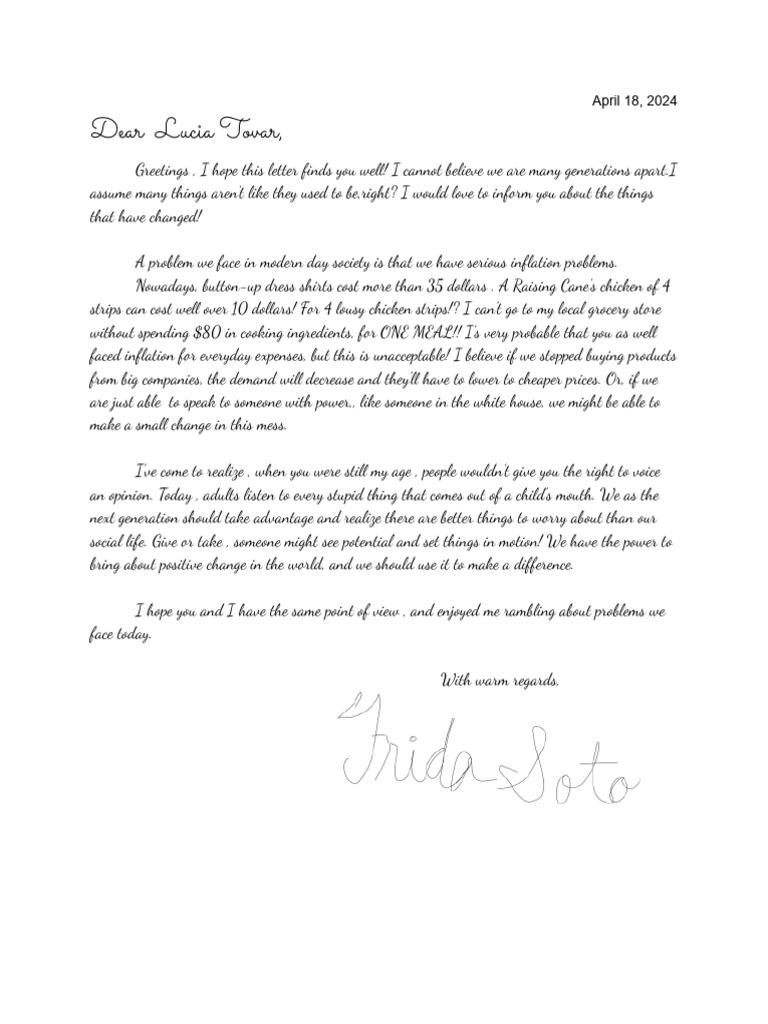 April 18, 2024
Dear Lucia Tovar,
Greetings , I hope this letter finds you well! I cannot believe we are many generations apart.I
assume many things aren't like they used to be,right? I would love to inform you about the things
that have changed!
A problem we face in modern day society is that we have serious inflation problems.
Nowadays, button-up dress shirts cost more than 35 dollars . A Raising Cane's chicken of 4
strips can cost well over 10 dollars! For 4 lousy chicken strips!? I can't go to my local grocery store
without spending $80 in cooking ingredients, for ONE MEAL!! I's very probable that you as well
faced inflation for everyday expenses, but this is unacceptable! I believe if we stopped buying products
from big companies, the demand will decrease and they'll have to lower to cheaper prices. Or, if we
are just able  to speak to someone with power,, like someone in the white house, we might be able to
make a small change in this mess.
I've come to realize , when you were still my age , people wouldn't give you the right to voice
an opinion. Today , adults listen to every stupid thing that comes out of a child's mouth. We as the
next generation should take advantage and realize there are better things to worry about than our
social life. Give or take , someone might see potential and set things in motion! We have the power to
bring about positive change in the world, and we should use it to make a difference.
I hope you and I have the same point of view , and enjoyed me rambling about problems we
face today.
With warm regards,
Frida Soto